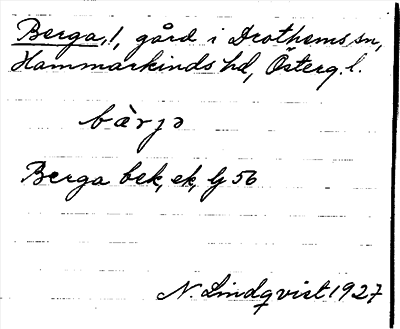 Berga, 1, gård i Drothems sn,
Hammarkinds hd, Österg. l.
bàrjə
Berga bek, ek, lj 56
N. Lindqvist 1927